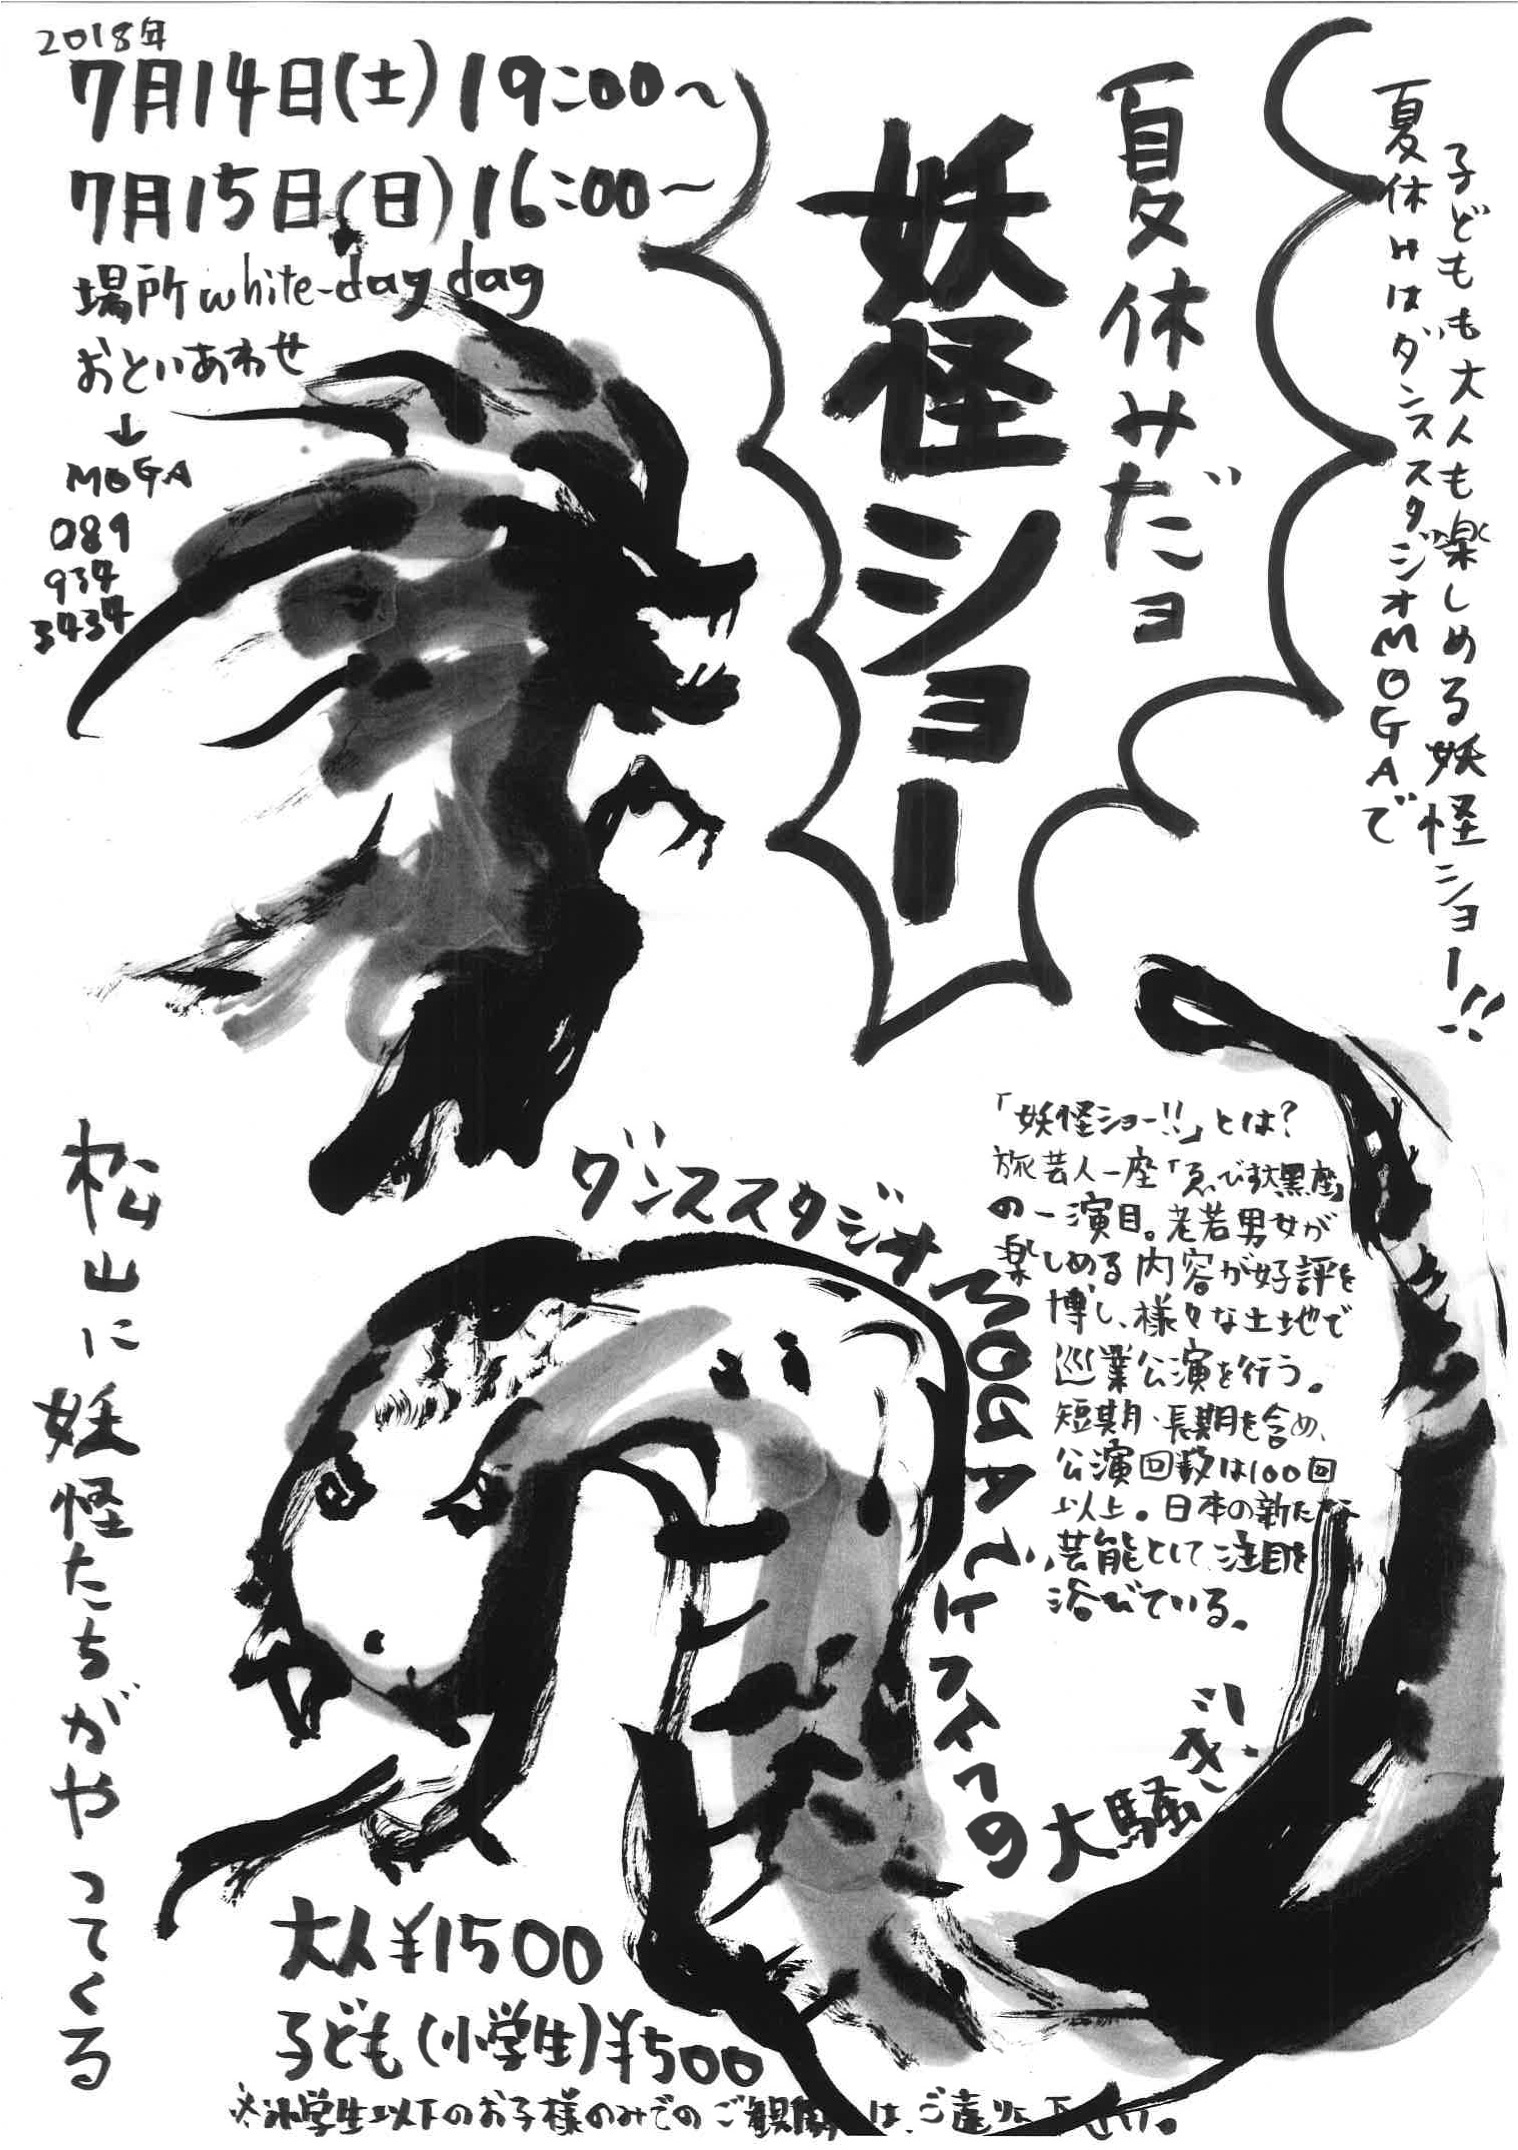 2018年
7月14日(土)19:00〜
7月15日(日)16:00〜
場所 white-dag dag
おといあわせ
↓
MOGA
089
934
3434
子どもも大人も楽しめる妖怪ショー!!
夏休みはダンススタジオMOGAで
夏休みだョ
妖怪ショー
「妖怪ショー!!」とは?
旅芸人一座「ゑびす大黒座」
の一演目。老若男女が
楽しめる内容が好評を
博し、様々な土地で
巡業公演を行う。
短期・長期を含め、
公演回数は100回
以上。日本の新たな
芸能として注目を
浴びている。
ダンススタジオMOGAで
大騒ぎ!!
松山に妖怪たちがやってくる
大人¥1500
子ども(小学生)¥500
※小学生以下のお子様のみでのご観劇は、ご遠りょ下さい。